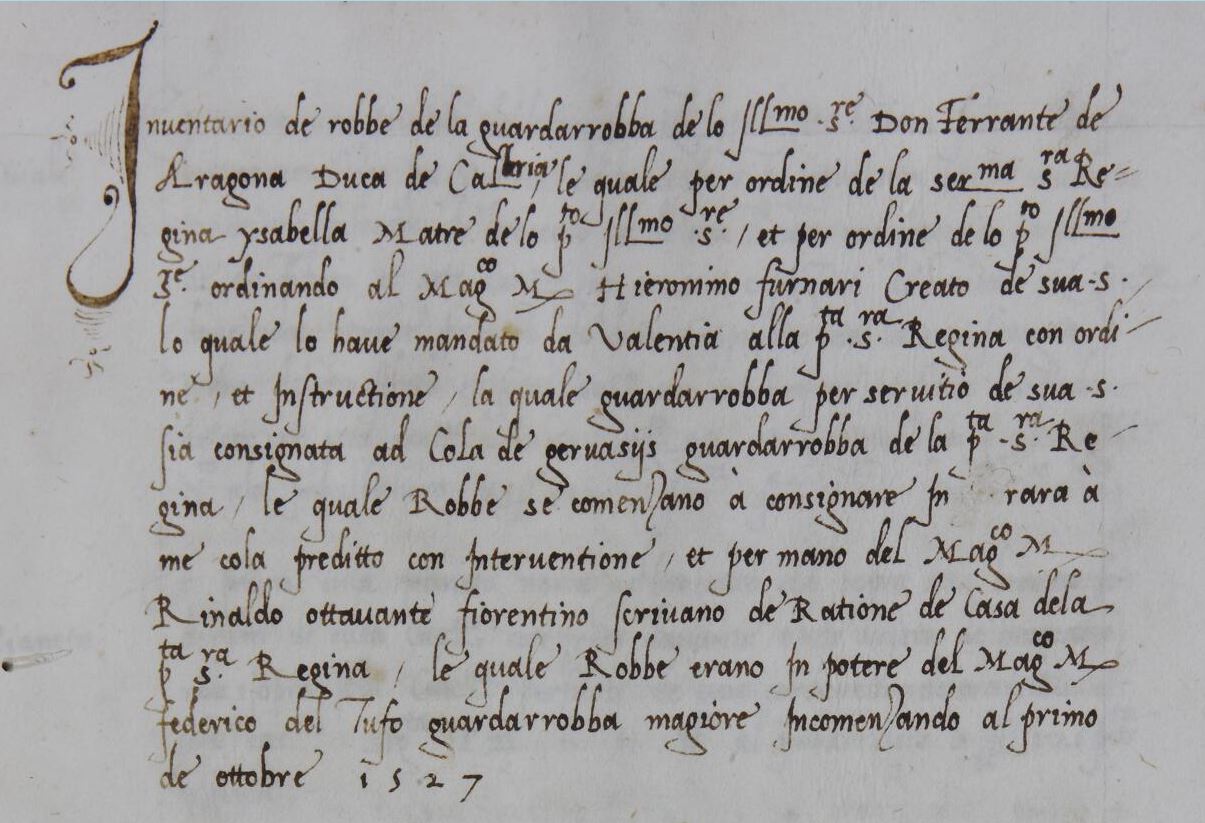 Inventario de robbe de la guardarrobba de lo Illmo .sre. Don Ferrante de
Aragona Duca de Calabria, le quale per ordine de la serma sra Re=
gina ysabella Matre de lo pto Illmo .sre. / et per ordine de lo pto Illmo
sre. ordinando al Magco M Hieronimo furnari Creato de sua .s.
lo quale lo have mandato da Valentia alla pta .sra. Regina con ordi-
ne / et Instructione / la quale guardarrobba per servitio de sua .s.
sia consignata ad Cola de gervasijs guardarrobba de la pta .sra. Re-
gina / le quale Robbe se comenzano à consignare In rara à
me cola preditto con Interventione / et per mano del Magco M
Rinaldo ottavante fiorentino scrivano de Ratione de Casa dela
pta sra. Regina / le quale Robbe erano In potere del Magco M
federico del Tufo guardarrobba magiore Incomenzando al primo
de ottobre 1527